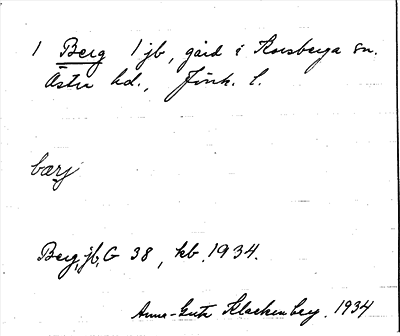 1 Berg 1 jb, gård i Korsberga sn.
Östra hd., Jönk. l.
bærj
Berg, jb, G 38, kb. 1934.
Anna-Greta Klackenberg. 1934